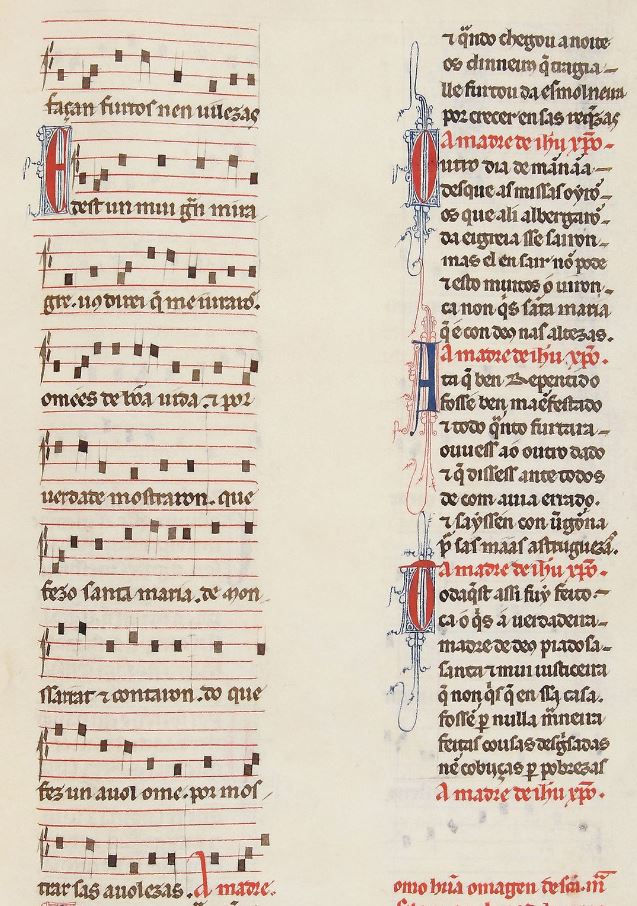 façan furtos nen uilezas
E dest un mui gñ mira
gre. uꝯ direi q̃ me iuraro.
omées de bõa uida. ⁊ por
uerdade mostraron. que
fezo santa maria. de mon
ssarrat ⁊ contaron. do que
fez un auol ome. por mos
trar sas auolezas. A madre.
⁊ q̃ndo chegou a noite
os dinneiros q̃ tragia
lle furtou da esmolneira
por creçer en sas req̃zas
A madre de ihũ xp̃o.
Outro dia de mãnáa
desque as missas oyrõ
os que ali albergarõ
da eigreia sse sairon
mas el en sair nõ pode
⁊ esto muitos o uiron
ca non q̃s sãta maria
q̃ é con deꝯ nas altezas.
A madre de ihũ xp̃o.
Ata q̃ ben repentido
fosse ben mãefestado
⁊ todo q̃nto furtara
ouuess ao outro dado
⁊ q̃ dissess ante todos
de com auia errado.
⁊ sayssen con ũgõna
ꝑ sas maas astruguezas.
A madre de ihũ xp̃o.
Todaq̃st assi fuy feito
ca o q̃s a uerdadeira
madre de deꝯ piadosa
santa ⁊ mui iusticeira
q̃ non q̃s q̃ en ssa casa.
fosse ꝑ nulla mãneira
feitas cousas desg̃sadas
nẽ cobiiças ꝑ pobrezas
A madre de ihũ xp̃o.
omo hũa omagen de scã. m̃